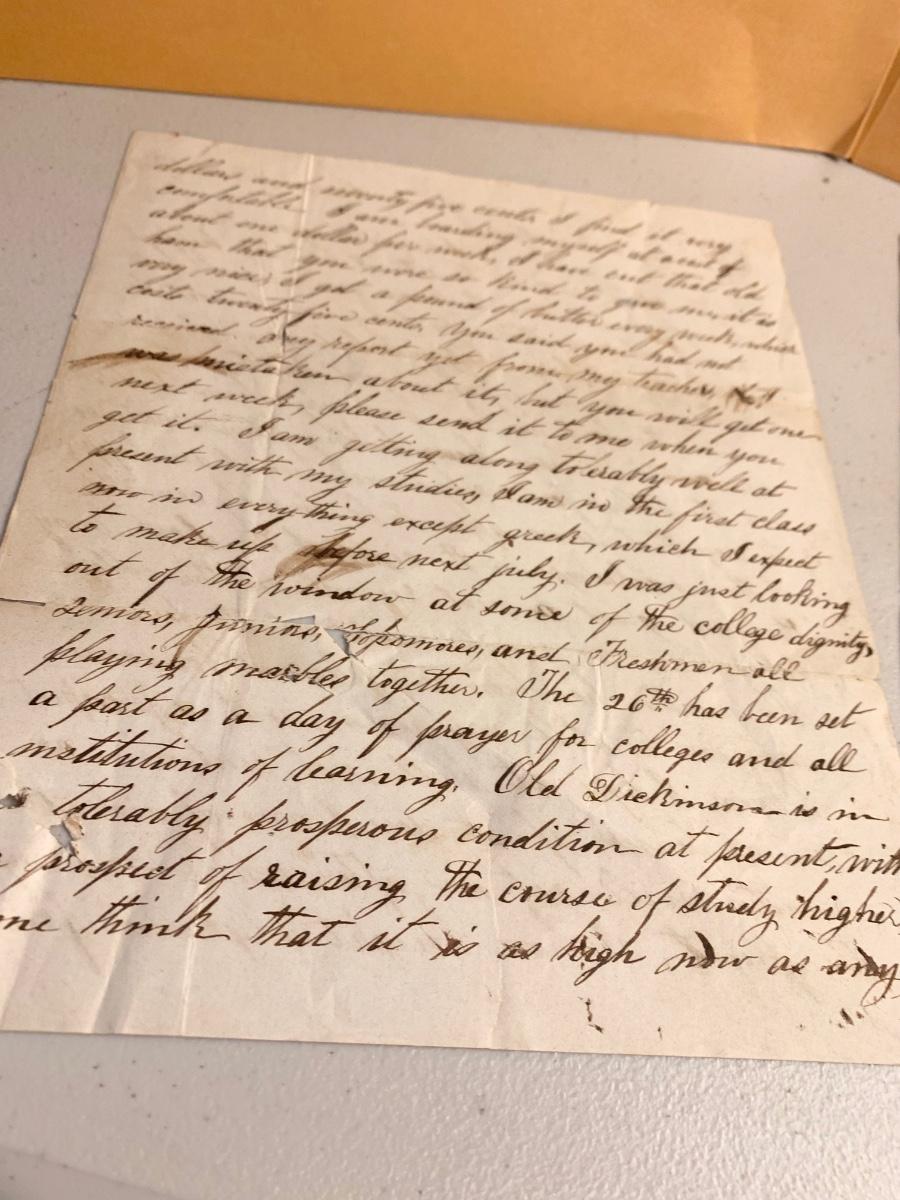 dollars and seventy five cents. I find it very
comfortable. I am boarding myself at a cost of
about one dollar per week, I have cut that old
ham that you were so kind to give me, it is
very nice. I get a pound of butter every week, which
costs twenty five cents. You said you had not
received any report yet from my teacher,
was mistaken about it, but you will get one
next week, please send it to me when you
get it. I am getting along tolerably well at
present with my studies, I am in the first class
now in everything except greek, which I expect
to make up before next july. I was just looking
out of the window at some of the college dignity,
Seniors, Juniors, Sopomores, and Freshmen all
playing marbles together. The 26th has been set
a part as a day of prayer for colleges and all
institutions of learning. Old Dickinson is in
tolerably prosperous condition at present, with
prospect of raising the course of study higher,
think that it is as high now as any